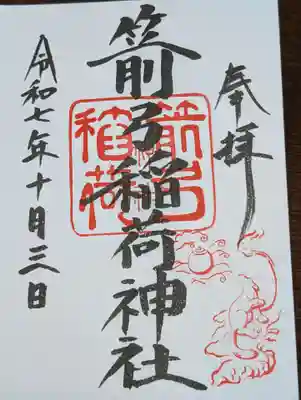 奉拝
箭弓稲荷神社
箭弓稲荷
令和七年十月三日